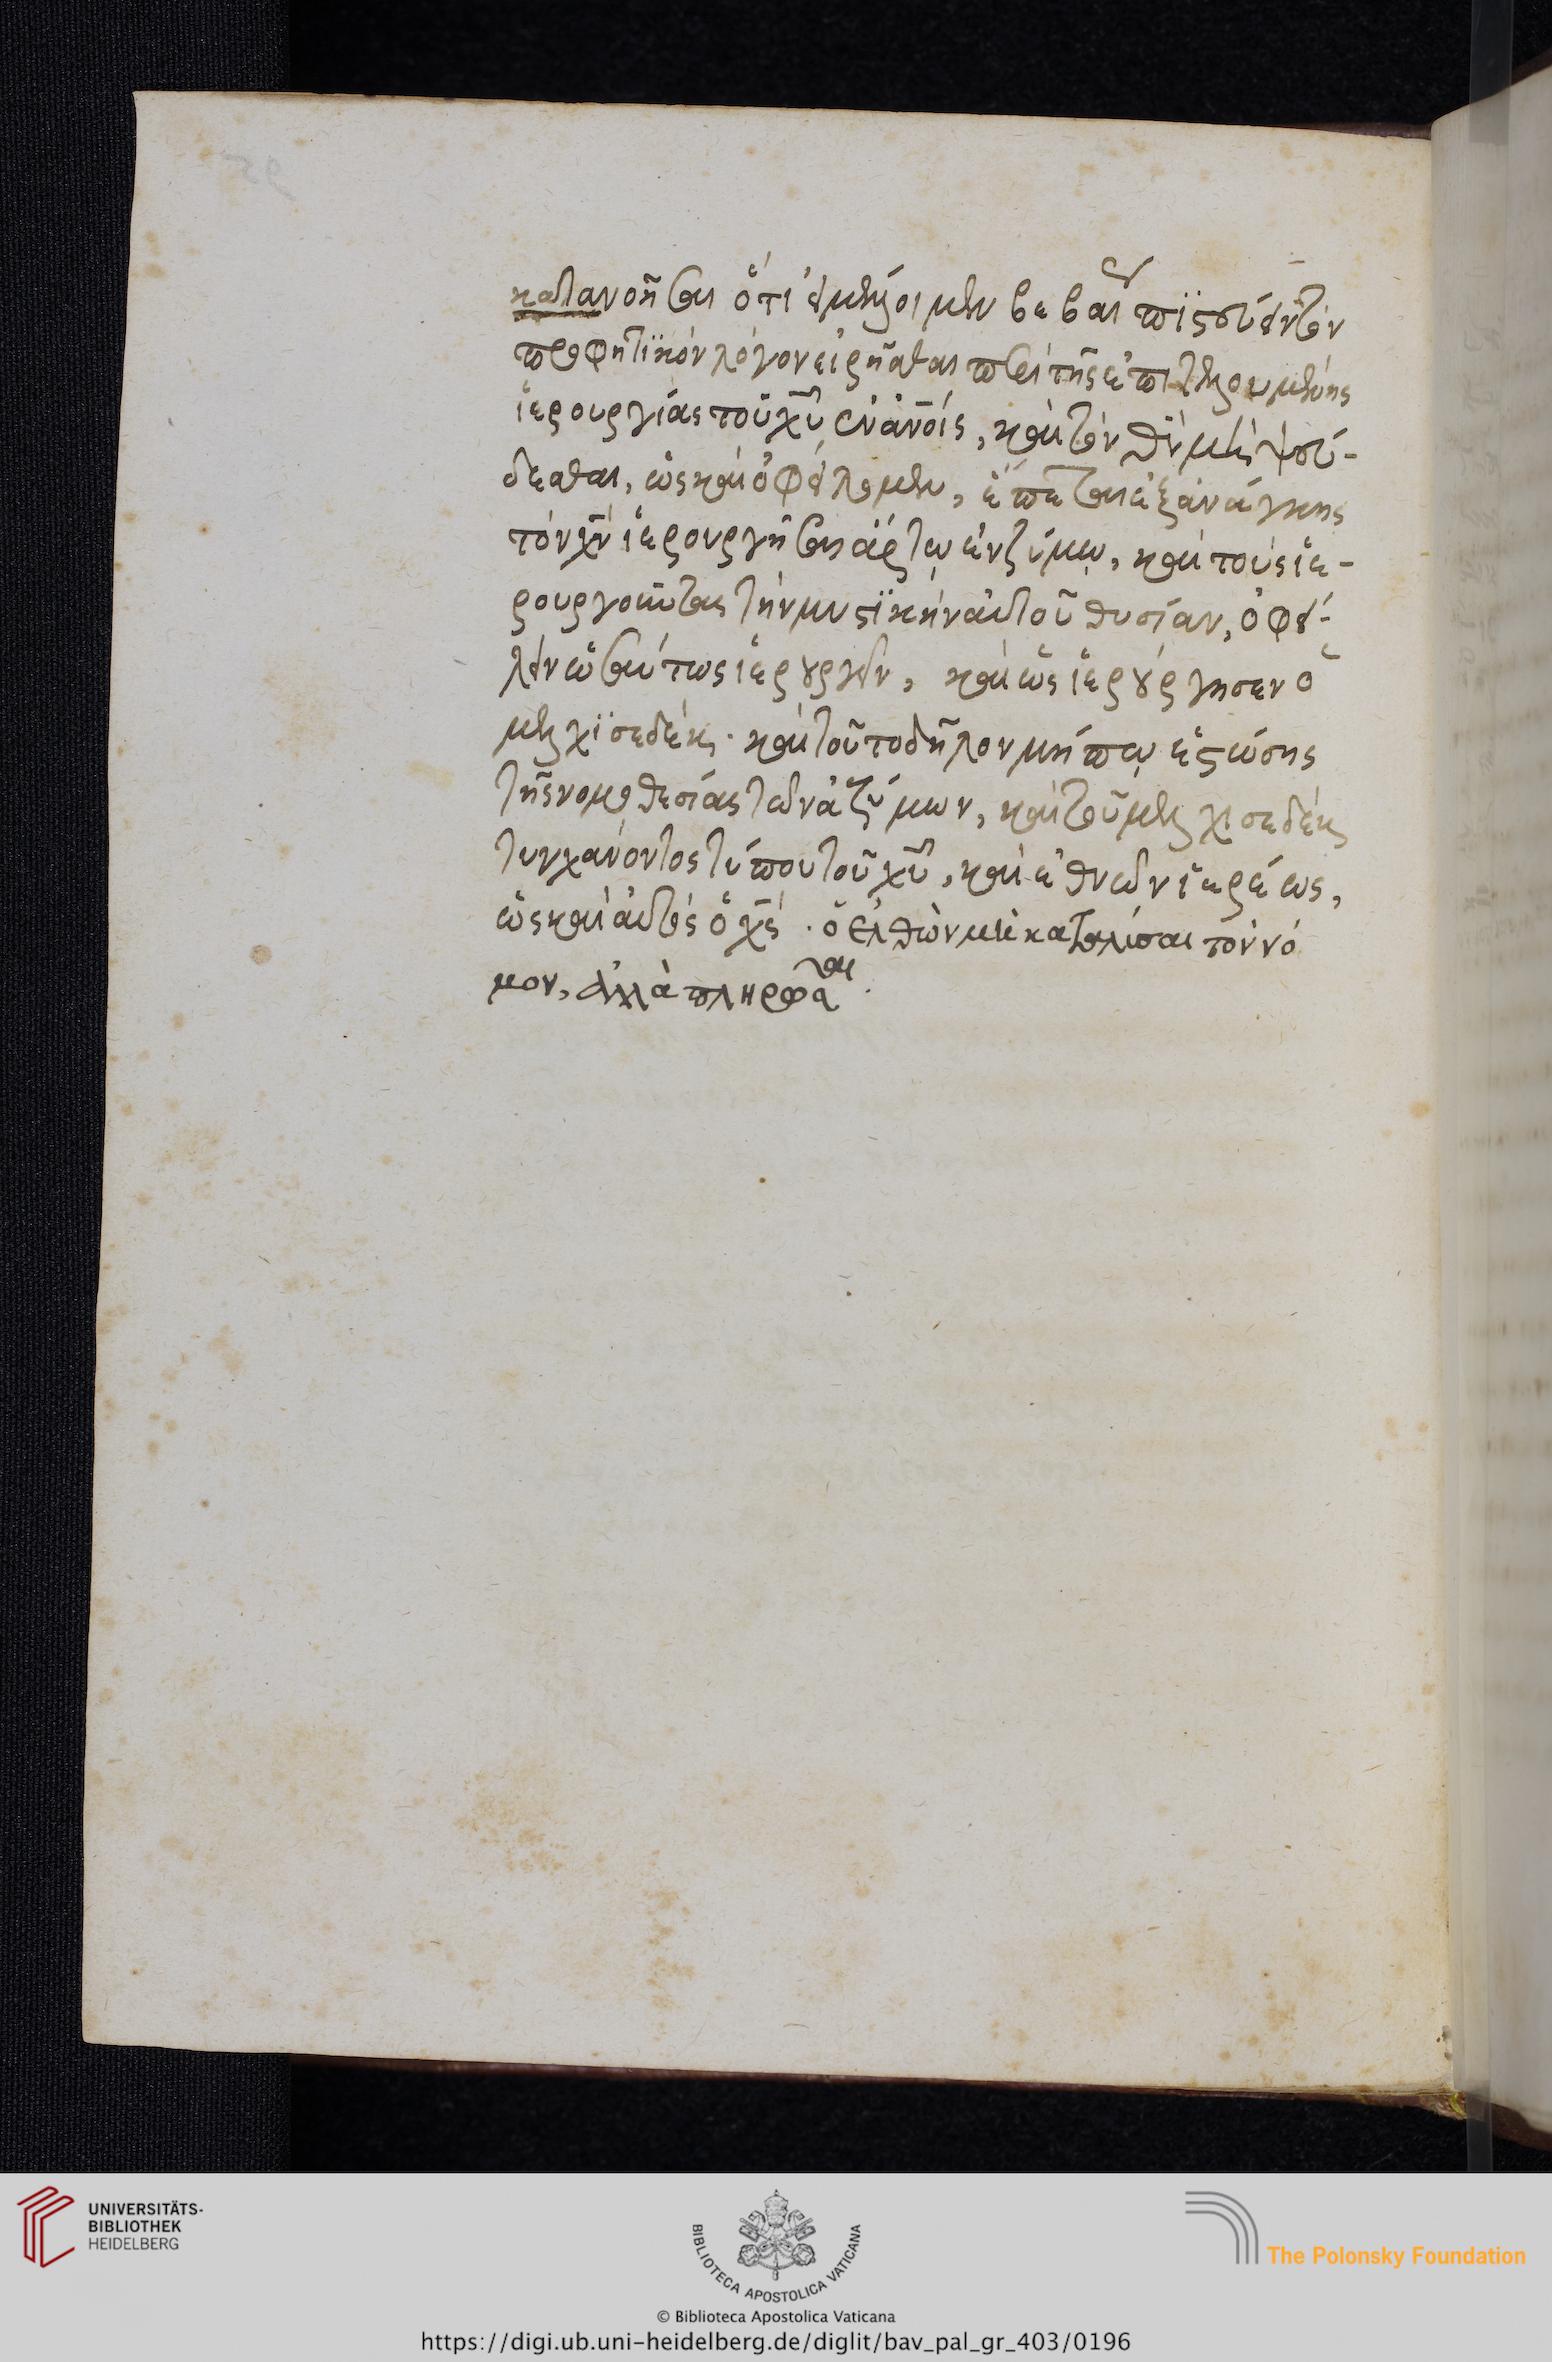 κατανοῆσαι ὅτι εἰ μέλλοιμεν βεβαίως πιστεύειν τὸν
προφητϊκὸν λόγον εἰρῆσθαι περὶ τῆς ἐπιτελουμένης
ἱερουργίας τοῦ χυ ἐν ἀνοις, καὶ τὸν θν μὴ ψεύ-
δεσθαι, ὡς καὶ ὀφείλομεν, ἕπεται ἐξ ἀνάγκης
τὸν χν ἱερουργῆσαι ἄρτῳ ἐνζύμῳ, καὶ τοὺς ἱε-
ρουργοῦντας τὴν μυστϊκὴν αὐτοῦ θυσίαν, ὀφεί-
λειν ὡσαύτως ἱερουργεῖν, καὶ ὡς ἱερούργησεν ὁ
μελχϊσεδέκ· καὶ τοῦτο δῆλον μήπω ἐστώσης
τῆς νομοθεσίας τῶν ἀζύμων, καὶ τοῦ μελχισεδὲκ
τυγχάνοντος τύπου τοῦ χυ, καὶ ἐθνῶν ἱερέως,
ὡς καὶ αὐτὸς ὁ χς· ὁ ἐλθὼν μὴ καταλύσαι τὸν νό
μον, ἀλλὰ πληρῶσαι.
UNIVERSITÄTS-
BIBLIOTHEK
HEIDELBERG
BIBLIOTECA APOSTOLICA VATICANA
The Polonsky Foundation
© Biblioteca Apostolica Vaticana
https://digi.ub.uni-heidelberg.de/diglit/bav_pal_gr_403/0196